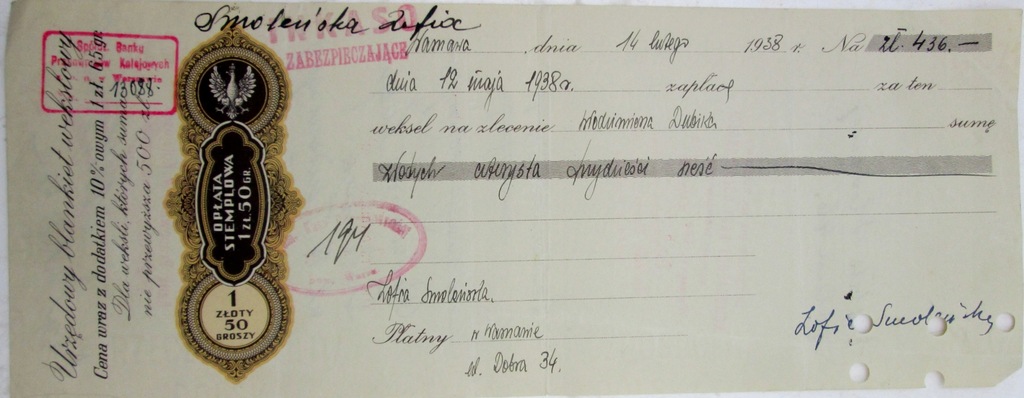 Smoleńska Zofia
INKASO
ZABEZPIECZAJĄCE
Spółdz. Banku
Pracowników Kolejowych
w Warszawie
13088.
Urzędowy blankiet wekslowy
Cena wraz z dodatkiem 10%-owym 1 zł. 65 gr.
Dla weksli, których suma
nie przewyższa 500 zł.
OPŁATA
STEMPLOWA
1 ZŁ. 50 GR.
1
ZŁOTY
50
GROSZY
Warszawa, dnia 14 lutego 1938 r. Na zł. 436,—
dnia 12 maja 1938 r. zapłacę za ten
weksel na zlecenie Włodzimierza Dubika sumę
złotych czterysta trzydzieści sześć
194
Zofia Smoleńska.
Płatny w Warszawie
ul. Dobra 34.
Zofia Smoleńska